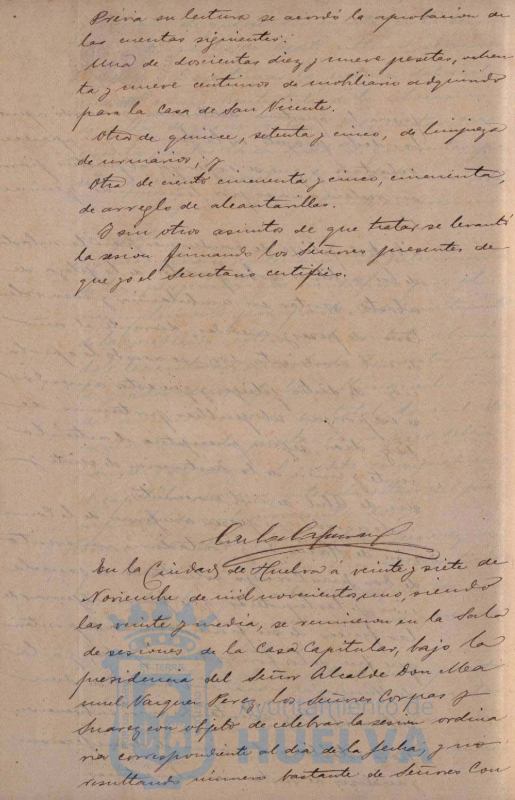 Prévia su lectura se acordó la aprobacion de
las cuentas siguientes:
Una de doscientas diez y nueve pesetas, ochen-
ta y nueve centimos de mobiliario adquirido
para la Casa de San Vicente.
Otra de quince, setenta y cinco, de limpieza
de urinários; y
Otra de ciento cincuenta y cinco, cincuenta,
de arreglo de alcantarillas.
I sin otros asuntos de que tratar se levantó
la sesion firmando los Señores presentes de
que yo el Secretario certifico.
En la Ciudad de Huelva á veinte y siete de
Noviembre de mil novecientos uno, siendo
las veinte y media, se reunieron en la Sala
de sesiones de la Casa Capitular, bajo la
presidencia del Señor Alcalde Don Ma
nuel Vazquez Perez, los Señores Corpas y
Suarez con objeto de celebrar la sesion ordina
ria correspondiente al dia de la fecha, y no
resultando número bastante de Señores Con
Ayuntamiento de
HUELVA